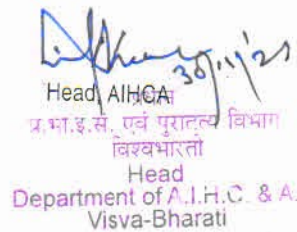 30/11/21
Head, AIHCA
प्र.भा.इ.सं. एवं पुरातत्व विभाग
विश्वभारती
Head
Department of A.I.H.C. & A.
Visva-Bharati